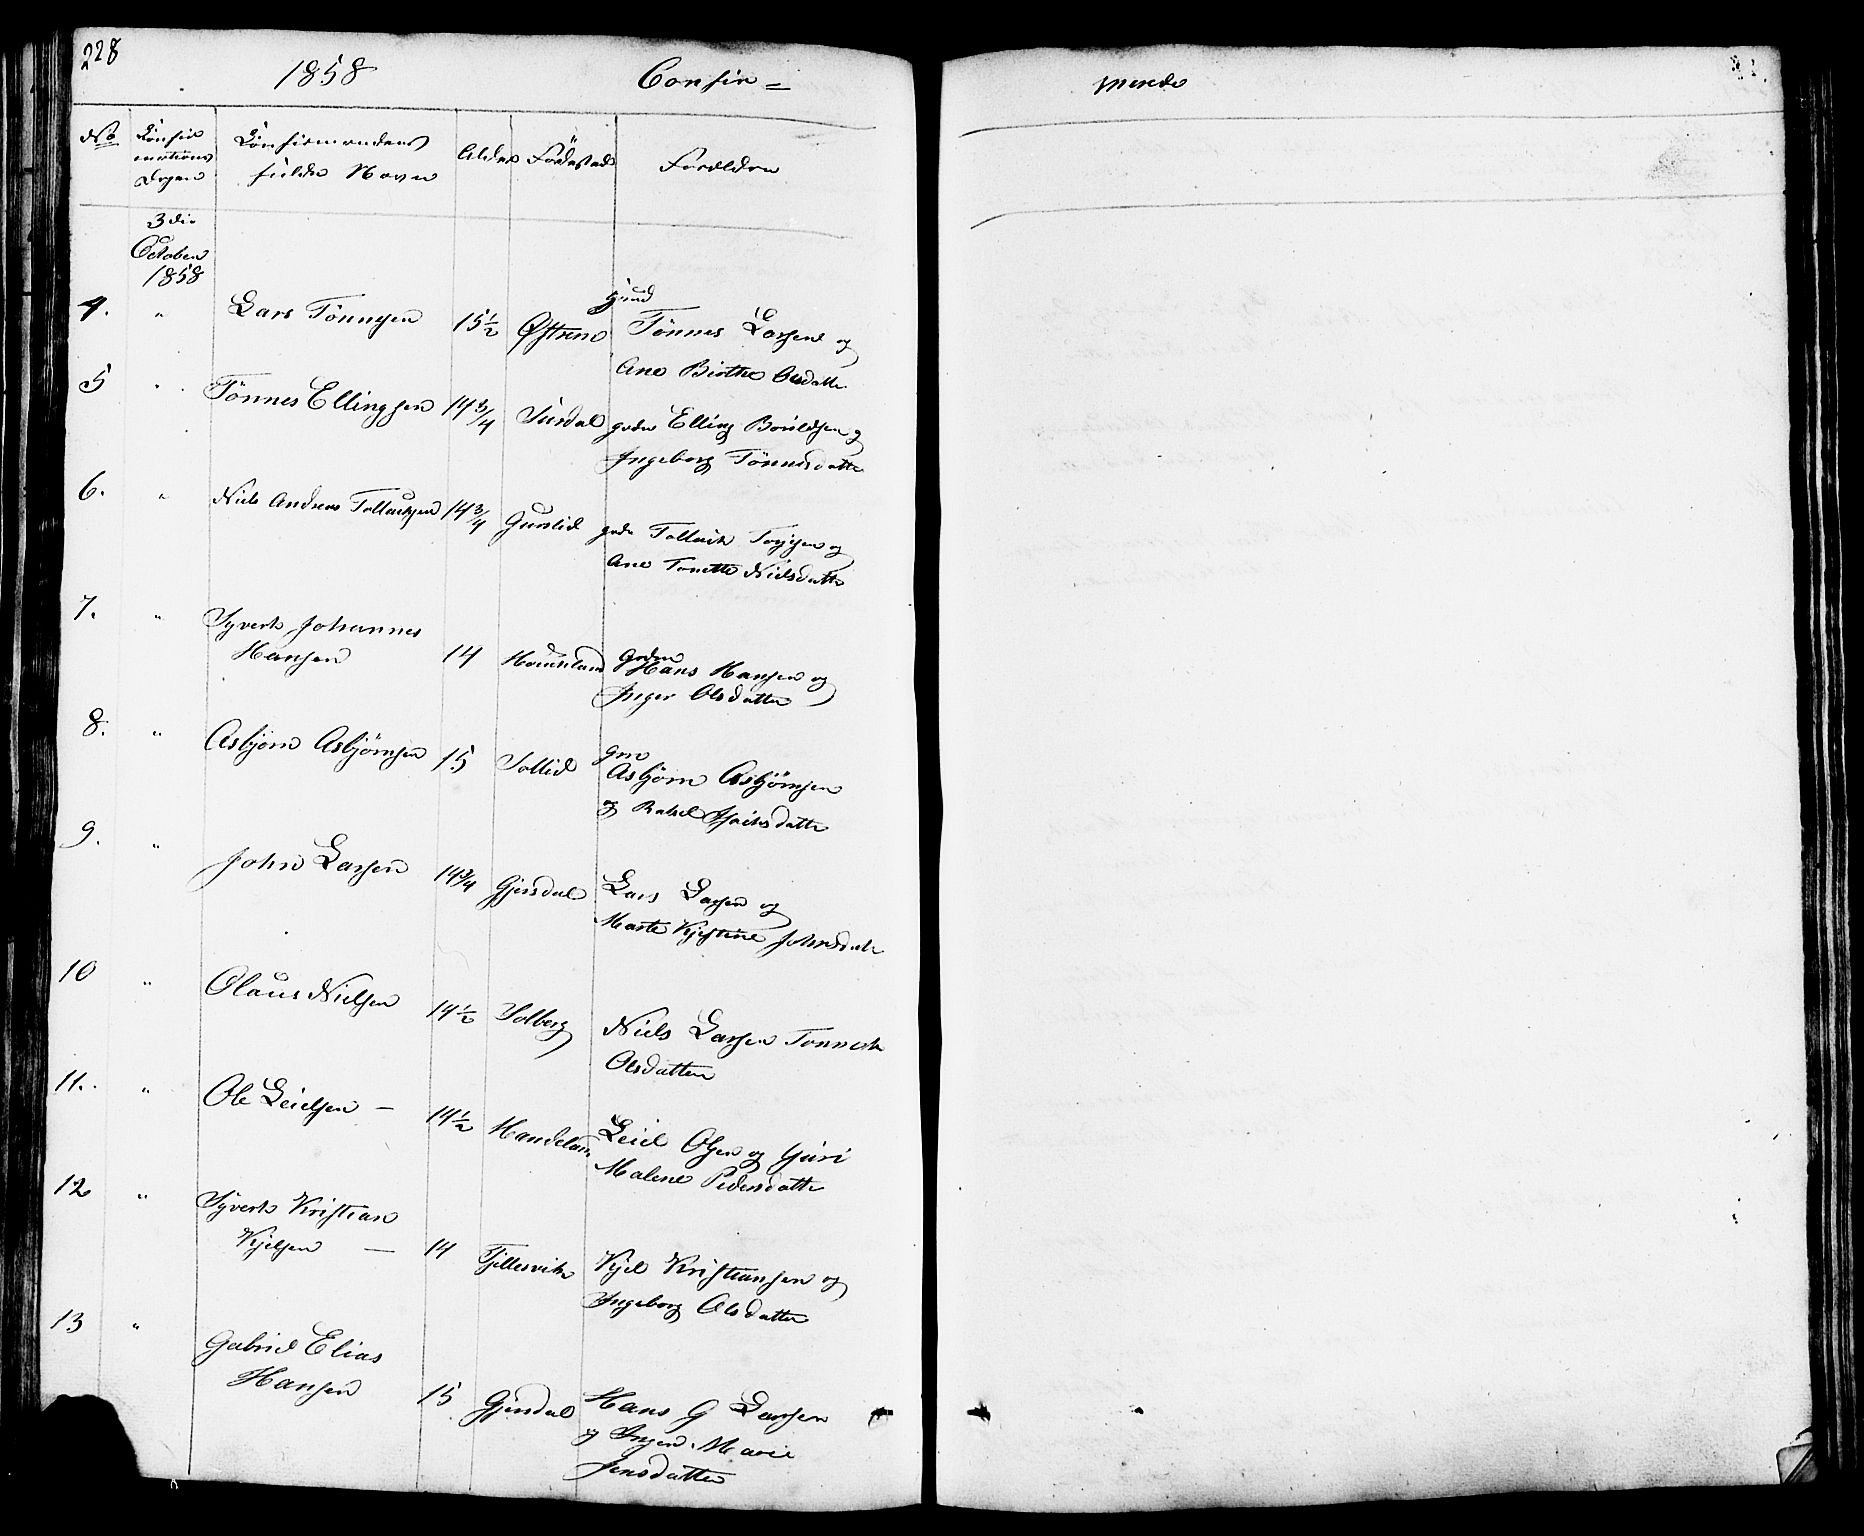 228
1858 Confir= merede
No Confir Confirmandens Alder Födested Forældre
mations fulde Navn
Dagen
3die
October
1858
4. " Lars Tönnesen 15 1/2 Østren Tönnes Larsen og
Ane Birthe Olsdatter
5 " Tönnes Ellingsen 14 3/4 Sirdal Elling og
Ingeborg Tönnesdatter
6. " Niels Andreas Tollachsen 14 3/4 Gunlid Tollach og
Ane Tonette Nielsdatter
7. " Syvert Johannes
Hansen 14 Gdm
Hans Hansen og
Inger Olsdatter
8. " Asbjörn Asbjörnsen 15 Sollid Gm
Asbjörn Asbjörnsen
og Rakel
9. " John Larsen 14 3/4 Gjersdal Lars Larsen og
Marte Kjestine Johnsdatter
10 " Olaus Nielsen 14 1/2 Solberg Niels Larsen
Olsdatter
11. " Ole Leielsen — 14 1/2 Handeland Leiel Olsen og Guri
Malene Pedersdatter
12 " Syvert Kristian
Kjelsen — 14 Fjellesvik Kjel Kristiansen og
Ingeborg Olsdatter
13 " Gabriel Elias
Hansen 15 Gjersdal Hans G Larsen
og Inger Marie
Jensdatter